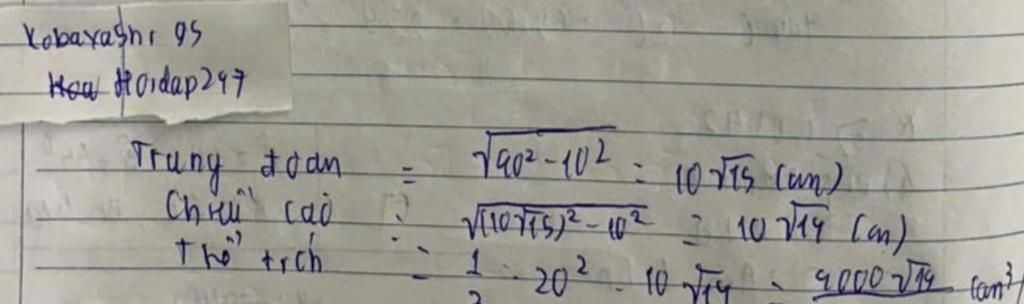 Kobayashi 95
Hoidap247
Trung đoạn = √40² - 10² = 10√15 (cm)
Chiều cao : √(10√15)² - 10² = 10√14 (cm)
Thể tích = 1 . 20² . 10√14 = 4000√14 (cm³)